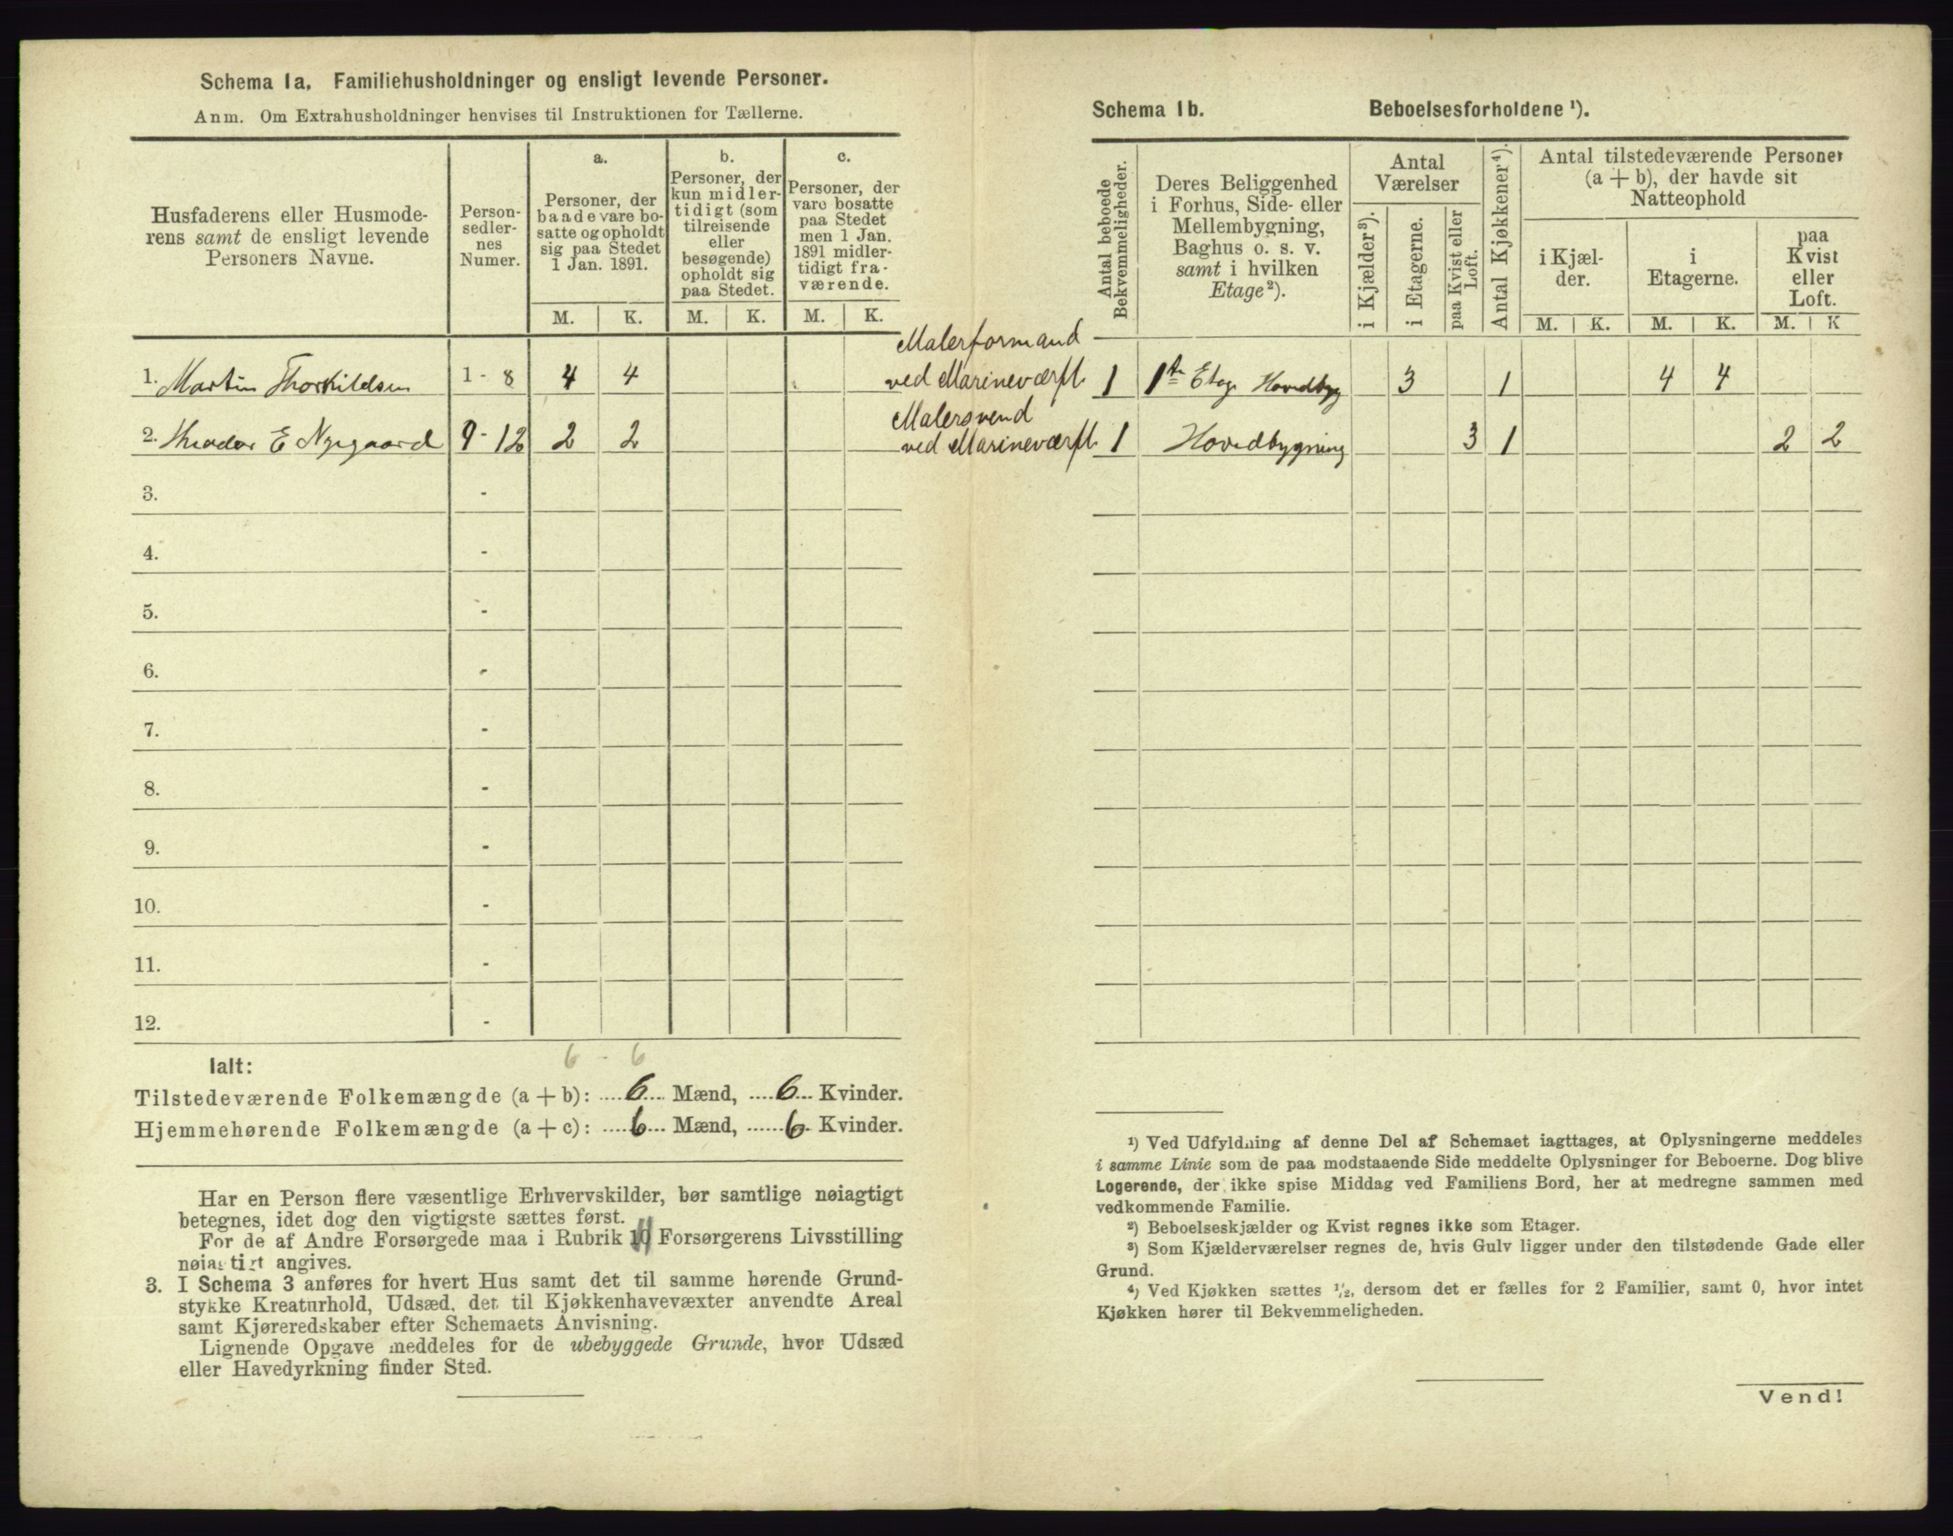 Schema 1a. Familiehusholdninger og ensligt levende Personer.
Anm. Om Extrahusholdninger henvises til Instruktionen for Tællerne.
Husfaderens eller Husmode-
rens samt de ensligt levende
Personers Navne.
Person-
sedler-
nes
Numer.
a.
Personer, der
baade vare bo-
satte og opholdt
sig paa Stedet
1 Jan. 1891.
M. K.
b.
Personer, der
kun midler-
tidigt (som
tilreisende
eller
besøgende)
opholdt sig
paa Stedet.
M. K.
c.
Personer, der
vare bosatte
paa Stedet
men 1 Jan.
1891 midler-
tidigt fra-
værende.
M. K.
1. Martin Thorkildsen 1 - 8 4 4
2. Theodor E Nygaard 9 - 12 2 2
3. -
4. -
5. -
6. -
7. -
8. -
9. -
10. -
11. -
12. -
Ialt:
6 - 6
Tilstedeværende Folkemængde (a + b): 6 Mænd, 6 Kvinder.
Hjemmehørende Folkemængde (a + c): 6 Mænd, 6 Kvinder.
Har en Person flere væsentlige Erhvervskilder, bør samtlige nøiagtigt
betegnes, idet dog den vigtigste sættes først.
For de af Andre Forsørgede maa i Rubrik 11 Forsørgerens Livsstilling
nøiagtigt angives.
3. I Schema 3 anføres for hvert Hus samt det til samme hørende Grund-
stykke Kreaturhold, Udsæd, det til Kjøkkenhavevæxter anvendte Areal
samt Kjøreredskaber efter Schemaets Anvisning.
Lignende Opgave meddeles for de ubebyggede Grunde, hvor Udsæd
eller Havedyrkning finder Sted.
Schema 1b. Beboelsesforholdene ¹).
Antal beboede
Bekvemmeligheder.
Deres Beliggenhed
i Forhus, Side- eller
Mellembygning,
Baghus o. s. v.
samt i hvilken
Etage²).
Antal
Værelser
i Kjælder³).
i Etagerne.
paa Kvist eller
Loft.
Antal Kjøkkener⁴).
Antal tilstedeværende Personer
(a + b), der havde sit
Natteophold
i Kjæl-
der.
i
Etagerne.
paa
Kvist
eller
Loft.
M. K. M. K. M. K
Malerformand
ved Marineværft. 1 1ste Etage Hovedbyg 3 1 4 4
Malersvend
ved Marineværft. 1 Hovedbygning 3 1 2 2
¹) Ved Udfyldning af denne Del af Schemaet iagttages, at Oplysningerne meddeles
i samme Linie som de paa modstaaende Side meddelte Oplysninger for Beboerne. Dog blive
Logerende, der ikke spise Middag ved Familiens Bord, her at medregne sammen med
vedkommende Familie.
²) Beboelseskjælder og Kvist regnes ikke som Etager.
³) Som Kjælderværelser regnes de, hvis Gulv ligger under den tilstødende Gade eller
Grund.
⁴) Ved Kjøkken sættes ½, dersom det er fælles for 2 Familier, samt 0, hvor intet
Kjøkken hører til Bekvemmeligheden.
Vend!